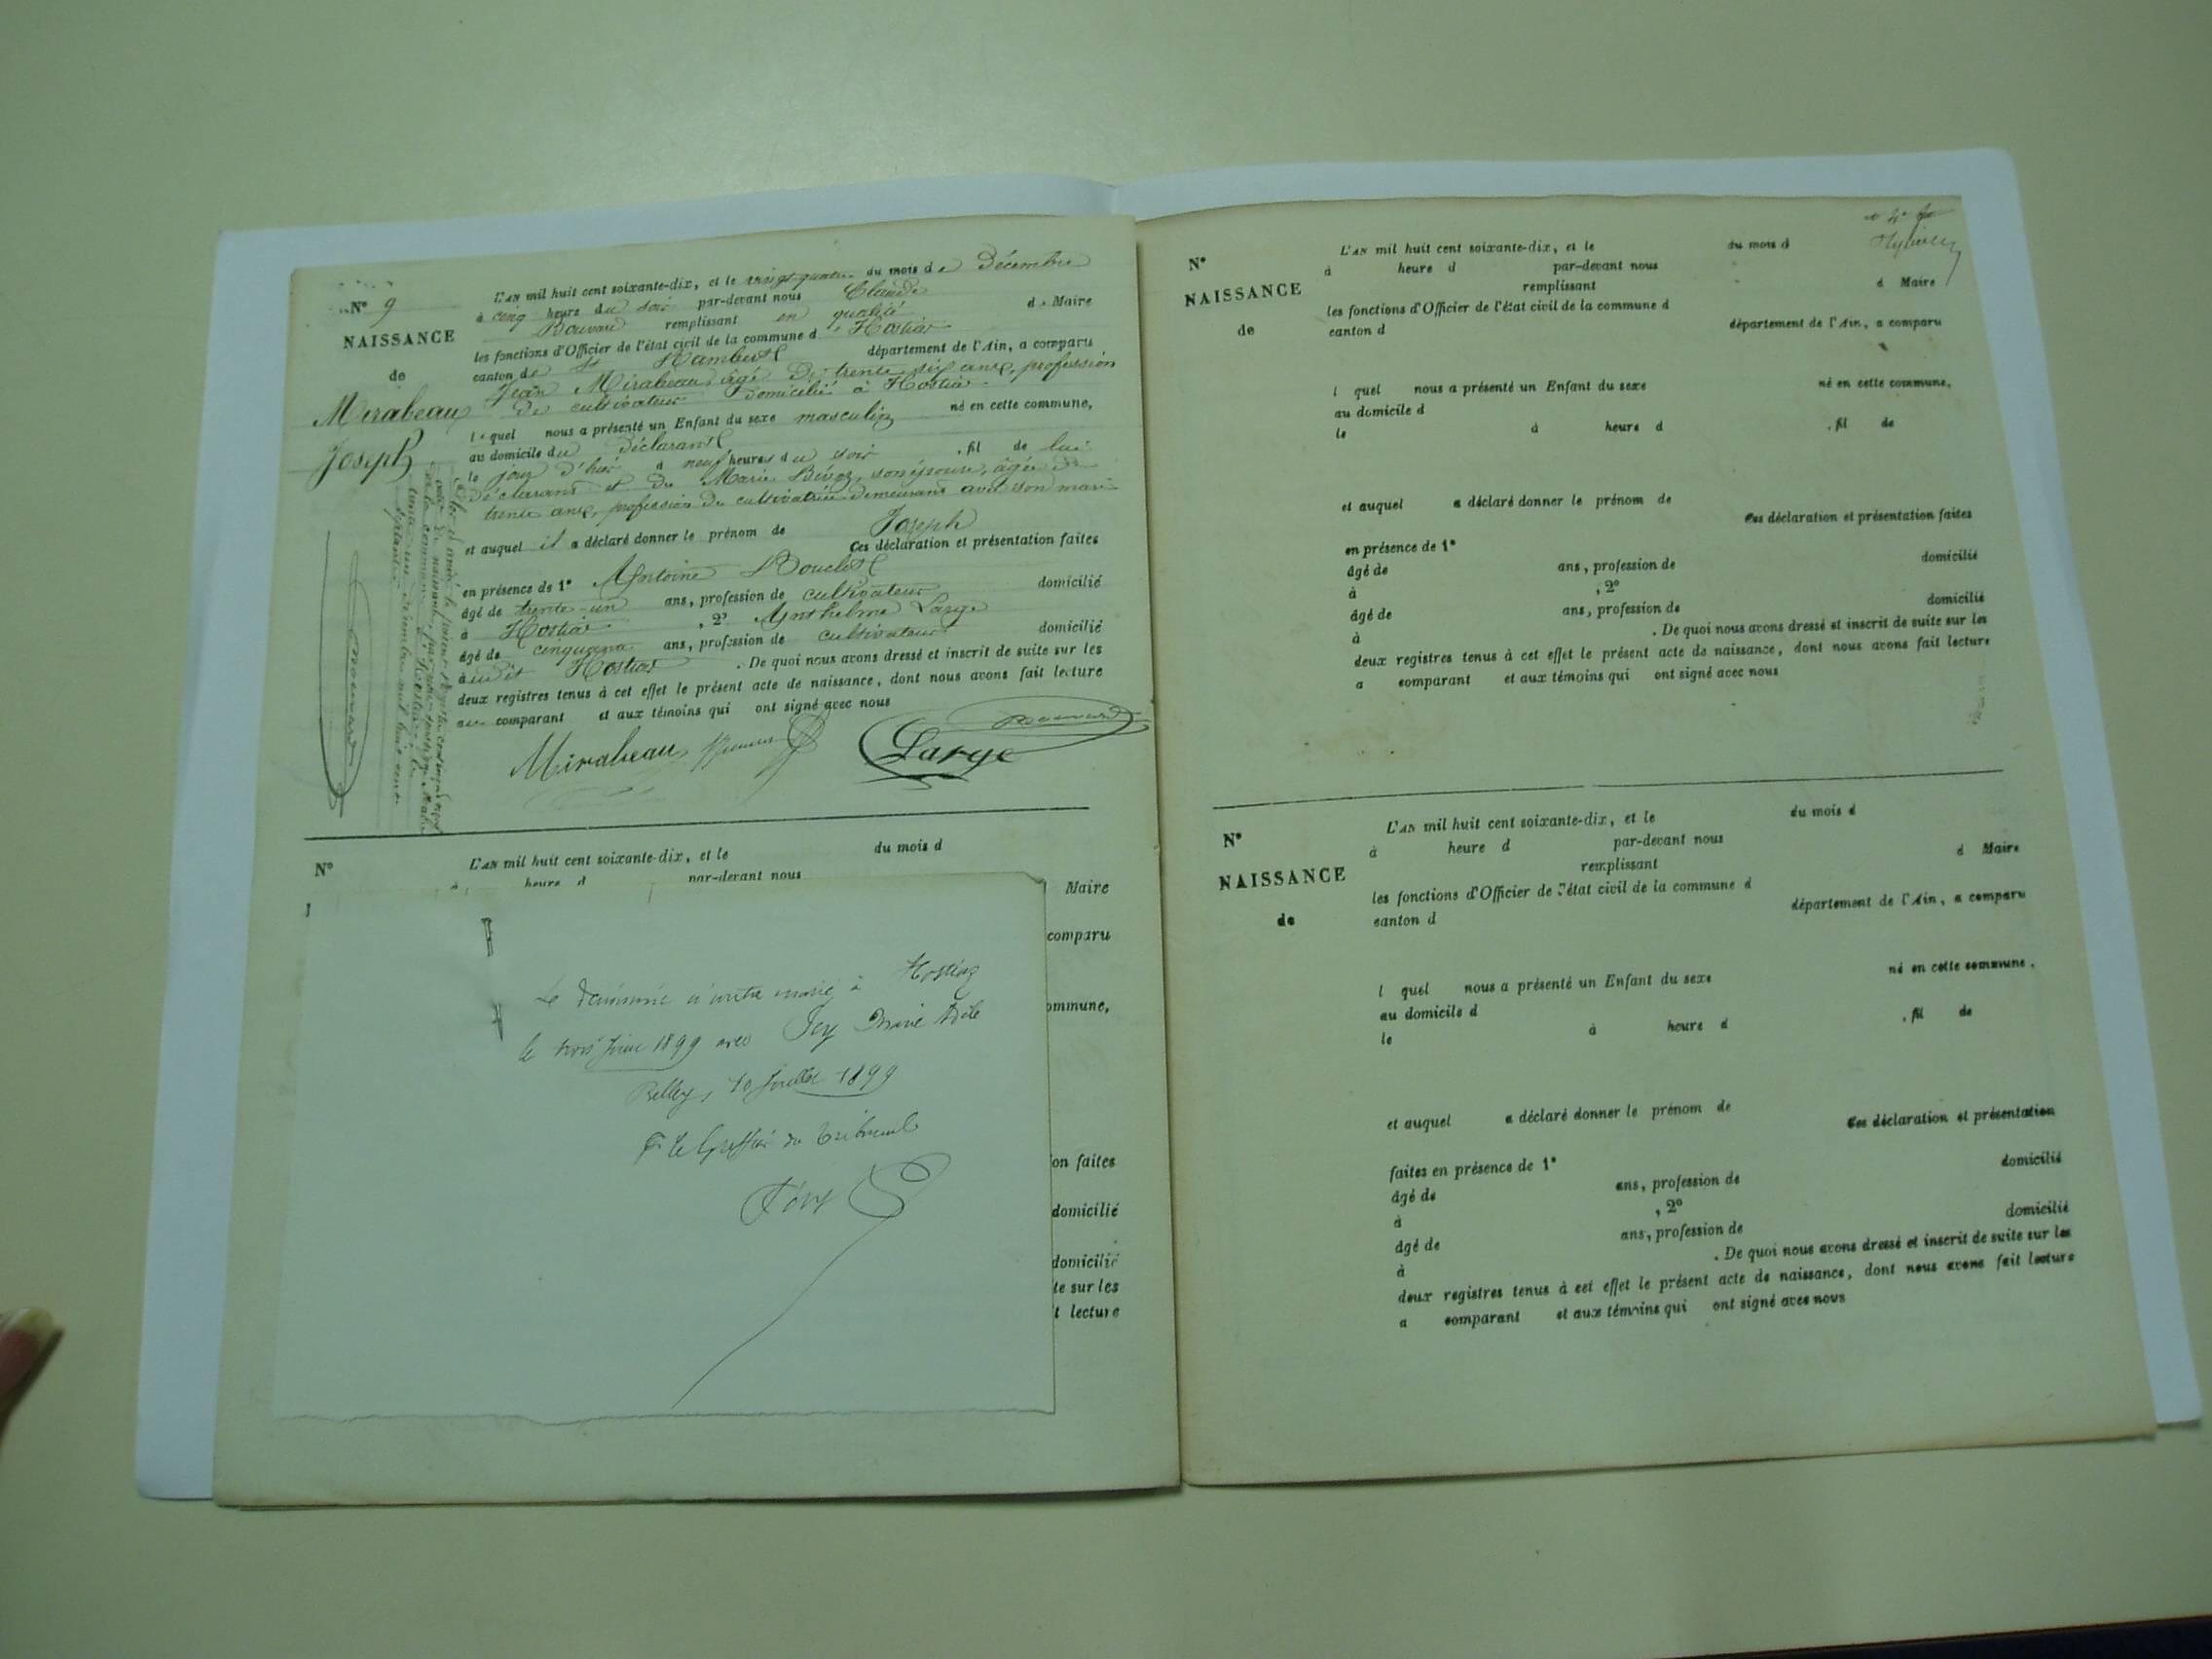 N° 9
NAISSANCE
de
Mirabeau
Joseph
L'AN mil huit cent soixante-dix, et le vingt-quatre du mois de Décembre
à cinq heure du soir par-devant nous Claude
Bouvard remplissant en qualité de Maire
les fonctions d'Officier de l'état civil de la commune d'Hostias
canton de St Rambert département de l'Ain, a comparu
Jean Mirabeau, âgé de trente six ans, profession
de cultivateur domicilié à Hostias
lequel nous a présenté un Enfant du sexe masculin né en cette commune,
au domicile du Déclarant
le jour d'hier à neuf heures du soir, fil de lui
déclarant et de Marie son épouse, âgée de
trente ans, profession de cultivatrice demeurant avec son mari
et auquel il a déclaré donner le prénom de Joseph
Ces déclaration et présentation faites
en présence de 1° Antoine
âgé de trente-un ans, profession de cultivateur domicilié
à Hostias, 2° Anthelme Large
âgé de cinquante ans, profession de cultivateur domicilié
à Hostias. De quoi nous avons dressé et inscrit de suite sur les
deux registres tenus à cet effet le présent acte de naissance, dont nous avons fait lecture
au comparant et aux témoins qui ont signé avec nous
Mirabeau
Large
Bouvard
N°
L'AN mil huit cent soixante-dix, et le du mois d
heure d par-devant nous
Maire
comparu
ommune,
on faites
domicilié
domicilié
te sur les
t lecture
à Hostiaz
le trois Juin 1899 avec Jey Marie
Belley, 10 Juillet 1899
Pr le Greffier du Tribunal
N°
NAISSANCE
de
L'AN mil huit cent soixante-dix, et le du mois d
à heure d par-devant nous
remplissant d Maire
les fonctions d'Officier de l'état civil de la commune d
canton d département de l'Ain, a comparu
l quel nous a présenté un Enfant du sexe né en cette commune,
au domicile d
le à heure d , fil de
et auquel a déclaré donner le prénom de
Ces déclaration et présentation faites
en présence de 1°
âgé de ans, profession de domicilié
à , 2°
âgé de ans, profession de domicilié
à . De quoi nous avons dressé et inscrit de suite sur les
deux registres tenus à cet effet le présent acte de naissance, dont nous avons fait lecture
a comparant et aux témoins qui ont signé avec nous
N°
NAISSANCE
de
L'AN mil huit cent soixante-dix, et le du mois d
à heure d par-devant nous
remplissant d Maire
les fonctions d'Officier de l'état civil de la commune d
canton d département de l'Ain, a comparu
l quel nous a présenté un Enfant du sexe né en cette commune,
au domicile d
le à heure d , fil de
et auquel a déclaré donner le prénom de
Ces déclaration et présentation
faites en présence de 1°
âgé de ans, profession de domicilié
à , 2°
âgé de ans, profession de domicilié
à . De quoi nous avons dressé et inscrit de suite sur les
deux registres tenus à cet effet le présent acte de naissance, dont nous avons fait lecture
a comparant et aux témoins qui ont signé avec nous